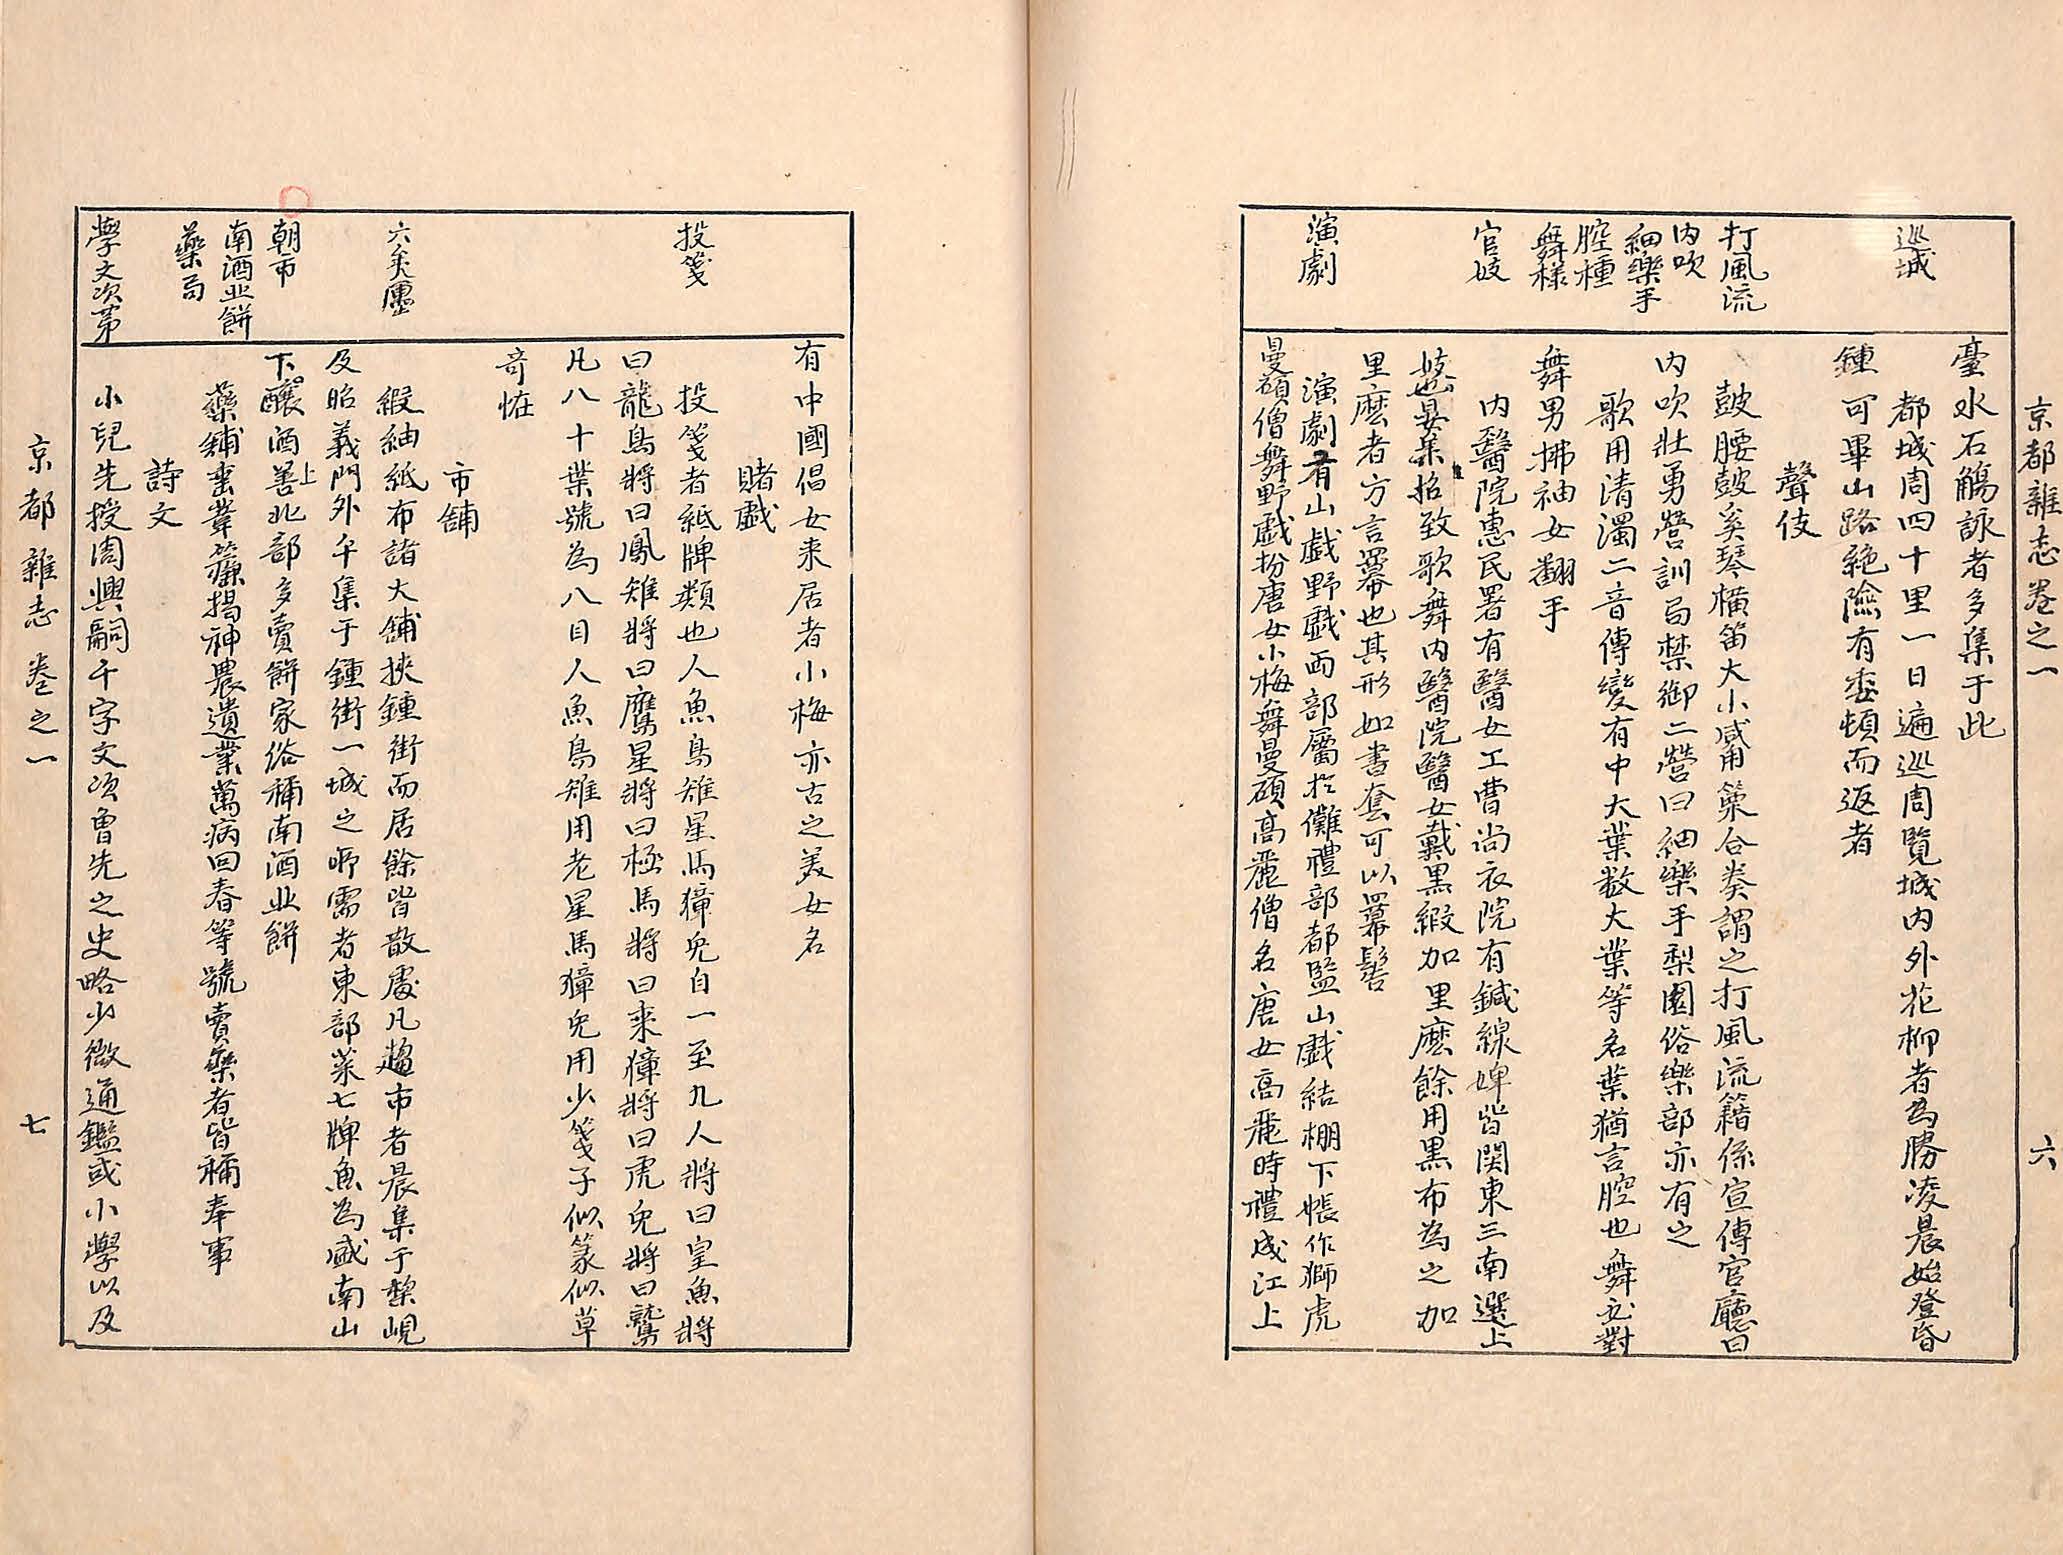 京都雜志卷之一
六
巡城
打風流
内吹
細樂手
腔種
舞樣
官妓
演劇
臺水石觴詠者多集于此
都城周四十里一日遍巡周覽城内外花柳者為勝凌晨始登昏
鍾可畢山路絶險有委頓而返者
聲伎
鼓腰鼓奚琴橫笛大小觱篥合奏謂之打風流籍係宣傳官廳曰
内吹壯勇營訓局禁御二營曰細樂手梨園俗樂部亦有之
歌用清濁二音傳變有中大葉數大葉等名葉猶言腔也舞必對
舞男拂袖女翻手
内醫院惠民署有醫女工曹尚衣院有鍼線婢皆関東三南選上
妓也宴集招致歌舞内醫院醫女戴黒緞加里麽餘用黒布為之加
里麽者方言羃也其形如書套可以羃髻
演劇有山戱野戱両部屬扵儺禮部都監山戱結棚下帳作獅虎
曼碩僧舞野戱扮唐女小梅舞曼碩高麗僧名唐女高麗時禮成江上
投箋
六矣廛
朝市
南酒北餅
藥局
學文次第
有中國倡女来居者小梅亦古之美女名
賭戱
投箋者紙牌類也人魚鳥雉星馬獐兔自一至九人將曰皇魚將
曰龍鳥將曰鳳雉將曰鷹星將曰極馬將曰乘獐將曰虎兔將曰鷲
凡八十葉號為八目人魚鳥雉用老星馬獐兔用少箋子似篆似草
奇恠
市鋪
緞紬紙布諸大鋪挾鍾街而居餘皆散處凡趨市者晨集于梨峴
及昭義門外午集于鍾街一城之所需者東部菜七牌魚為盛南山
下釀酒善上北部多賣餅家俗稱南酒北餅
藥鋪垂葦簾揭神農遺業萬病回春等號賣藥者皆稱奉事
詩文
小兒先授周興嗣千字文次曾先之史略少微通鑑或小學以及
京都雜志 卷之一
七